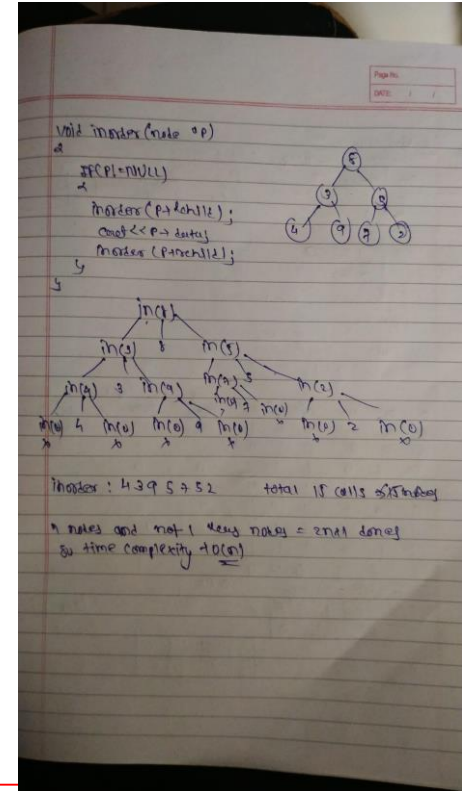 Page No.
DATE / /
void inorder(node *p)
{
if(p!=NULL)
{
inorder(p→lchild);
cout<<p→data;
inorder(p→rchild);
}
}
8
3
4 9 7 2
in(8)
in(3) 8 in(5)
in(4) 3 in(9) in(7) 5 in(2)
in(0) 7 in(0)
in(0) 4 in(0) in(0) 9 in(0) in(0) 2 in(0)
x x x x x x
inorder : 4 3 9 5 7 5 2 total 15 calls
n nodes and n+1 nodes = 2n+1
so time complexity O(n)